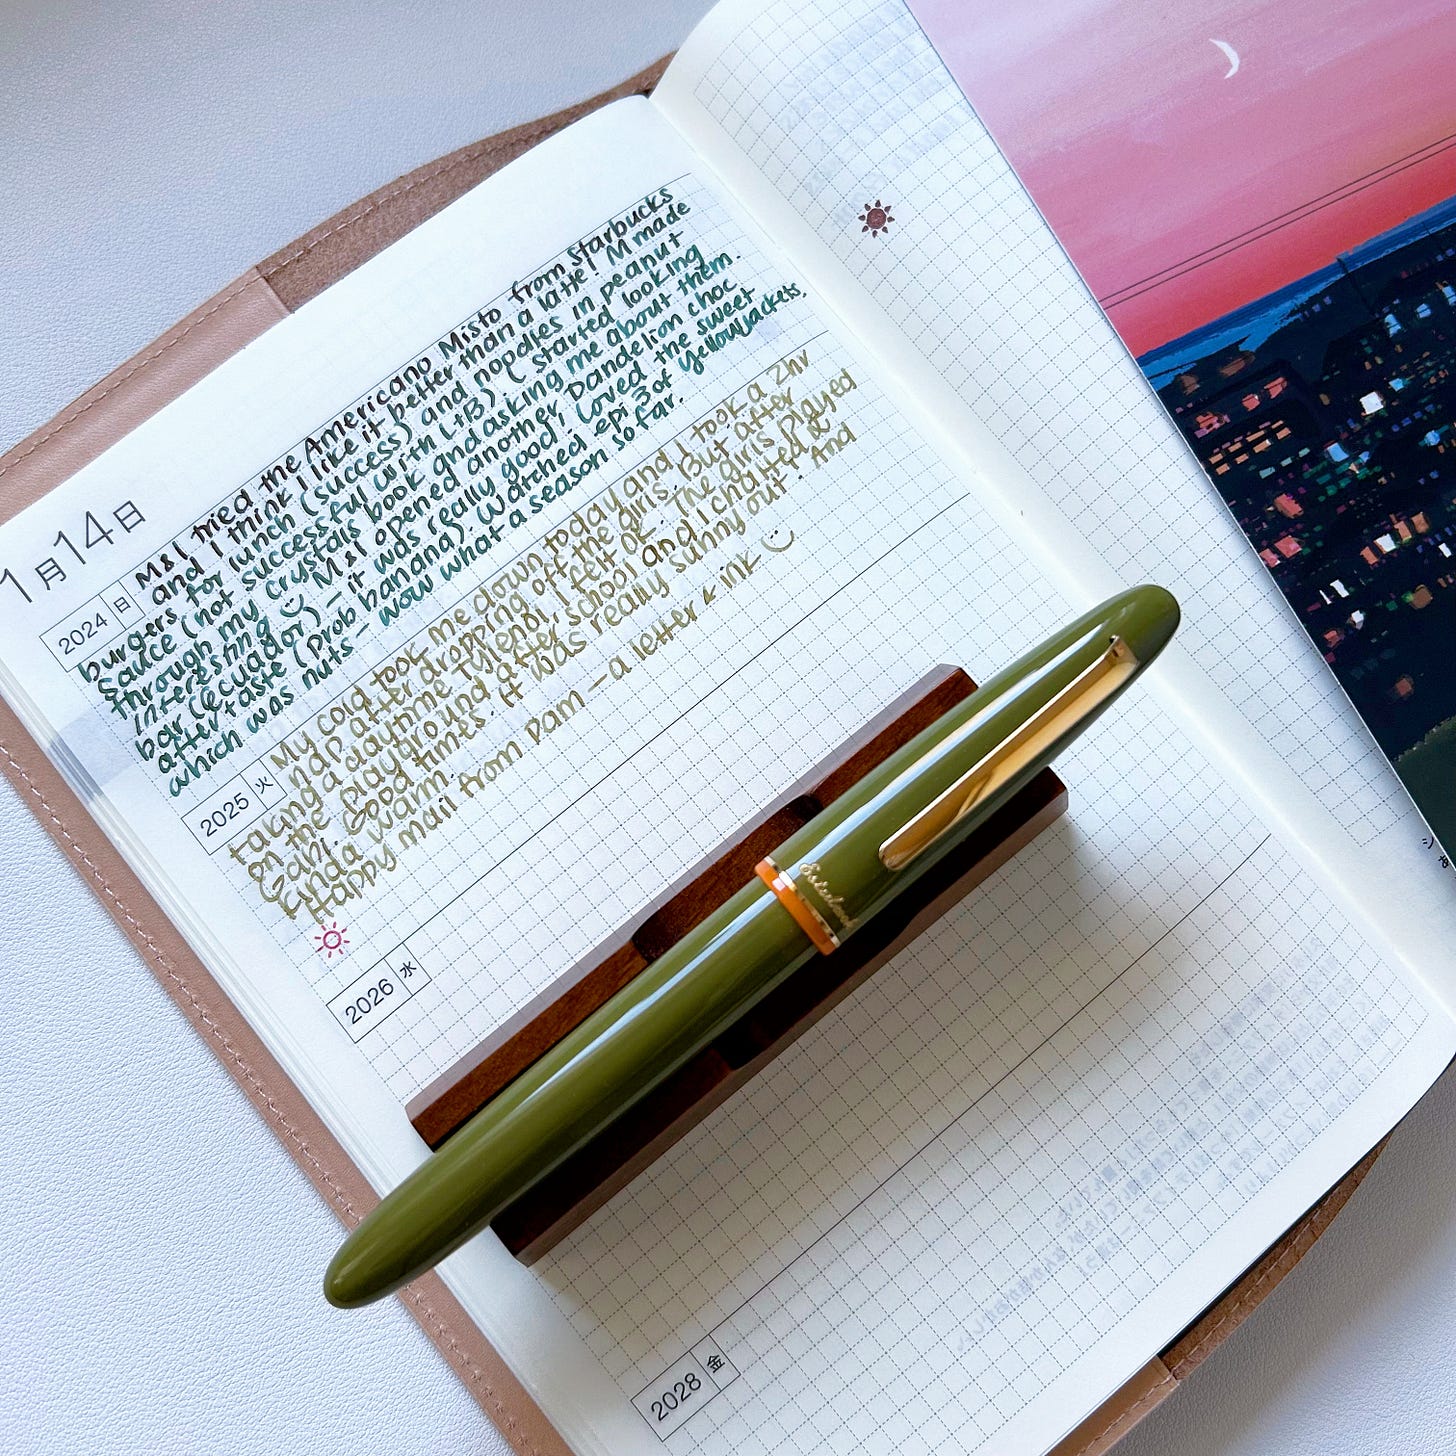 1月14日
2024 日
M&I tried the Americano Misto from Starbucks
and I think I like it better than a latte! M made
burgers for lunch (success) and noodles in peanut
sauce (not successful with LTB). C started looking
through my crystals book and asking me about them.
Interesting M&I opened another Dandelion choc
bar (Ecuador) - it was really good! Loved the sweet
aftertaste (prob banana). Watched epi 3 of Yellowjackets,
which was nuts - wow what a season so far.
2025 火
My cold took me down today and I took a 2hr
nap after dropping off the girls. But after
taking a daytime Tylenol, I felt ok. The girls played
on the playground after school and I chatted w
Gahi. Good times. It was really sunny out. And
kinda warm.
Happy mail from Pam - a letter & ink
2026 水
2028 金
Esterbrook